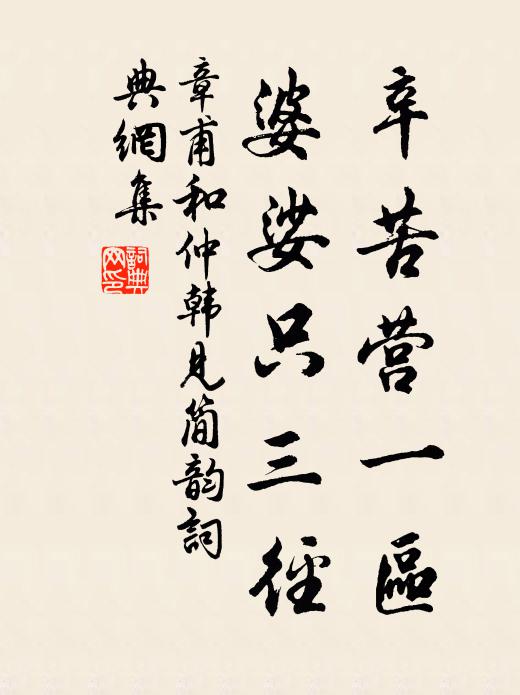 辛苦营一區
婆娑只三徑
章甫和仲韩见简韵詞
典網集
詞典網印